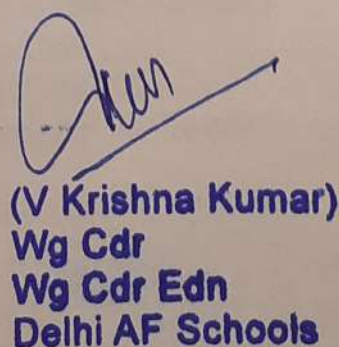 (V Krishna Kumar)
Wg Cdr
Wg Cdr Edn
Delhi AF Schools